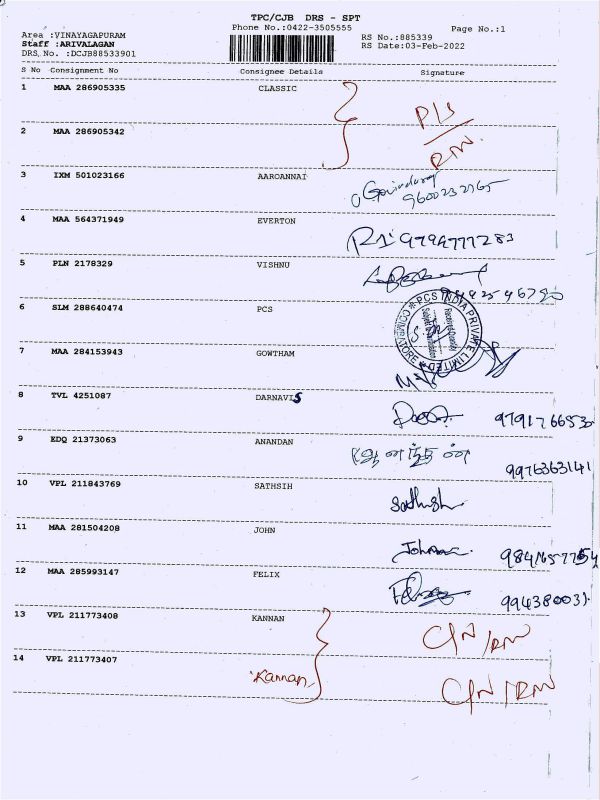 TPC/CJB DRS - SPT
Phone No.:0422-3505555
Page No.:1
Area :VINAYAGAPURAM
RS No.:885339
Staff :ARIVALAGAN
RS Date:03-Feb-2022
DRS. No. :DCJB88533901
S No Consignment No Consignee Details Signature
1 MAA 286905335 CLASSIC
2 MAA 286905342
3 IXM 501023166 AAROANNAI
4 MAA 564371949 EVERTON
5 PLN 2178329 VISHNU
6 SLM 288640474 PCS
PCS INDIA PRIVATE LIMITED
COIMBATORE
7 MAA 284153943 GOWTHAM
8 TVL 4251087 DARNAVIS
9 EDQ 21373063 ANANDAN
9976363141
10 VPL 211843769 SATHSIH
Sathish
11 MAA 281504208 JOHN
12 MAA 285993147 FELIX
13 VPL 211773408 KANNAN
C/N/RN
14 VPL 211773407 Kannan
C/N/RN